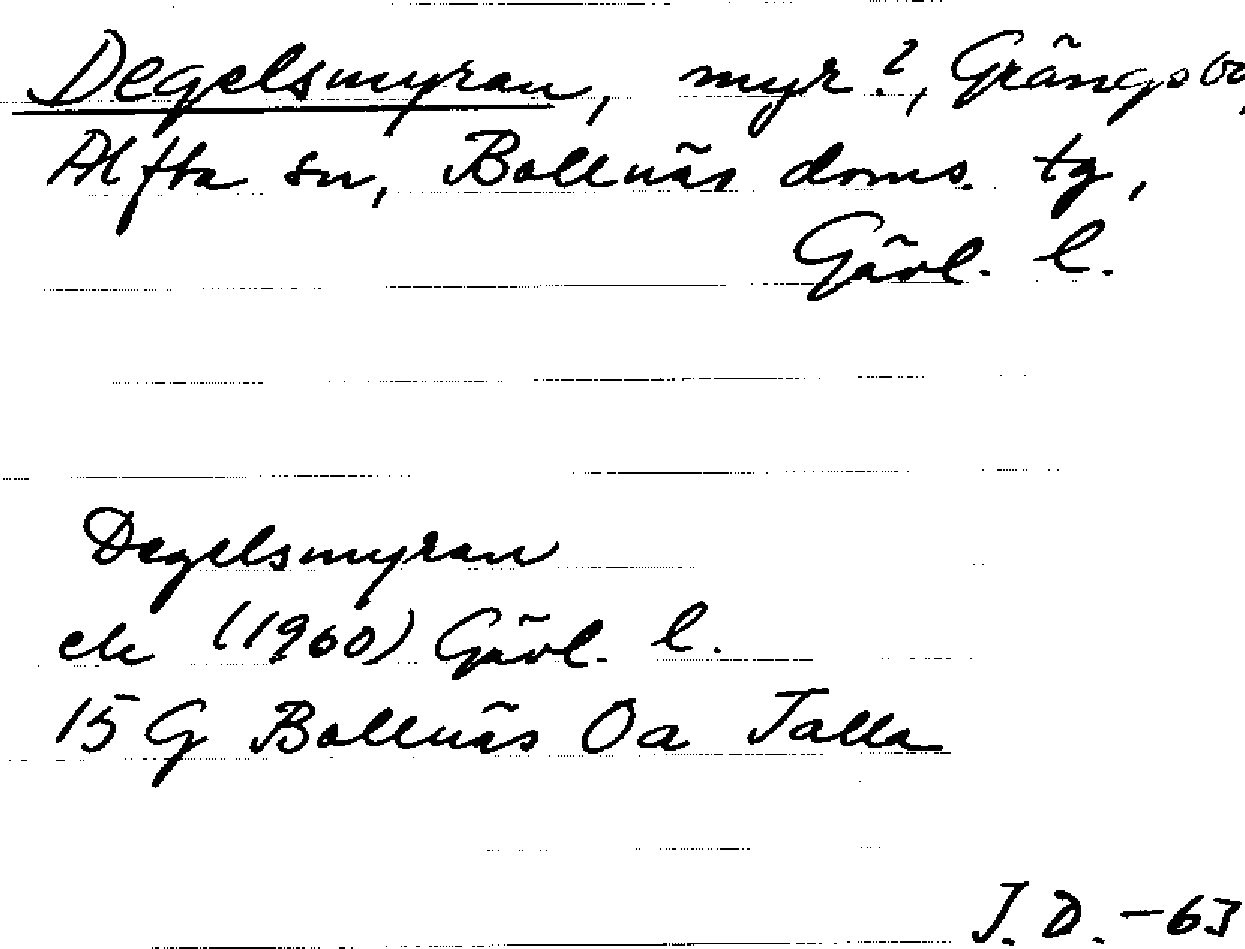 Degelsmyran, myr?, Grängsbo,
Alfta sn, Bollnäs doms. tg,
Gävl. l.
Degelsmyran
ek (1960) Gävl. l.
15 G Bollnäs Oa Talla
J. D. -63